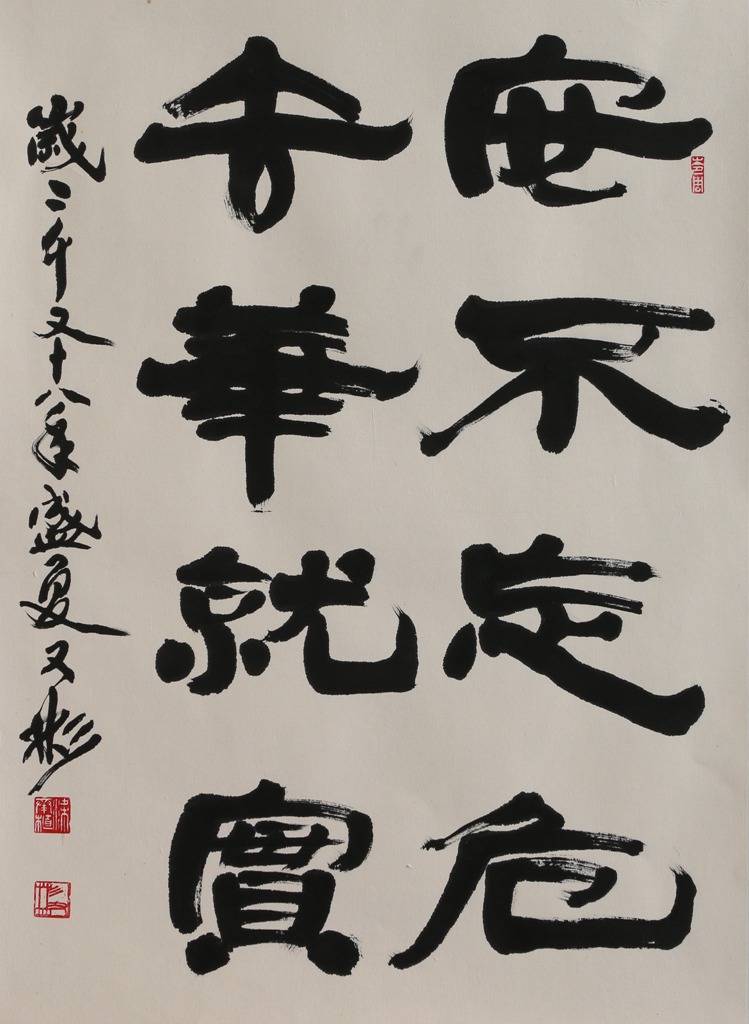 安不忘危
去華就實
歲二千又十八年盛夏又彬